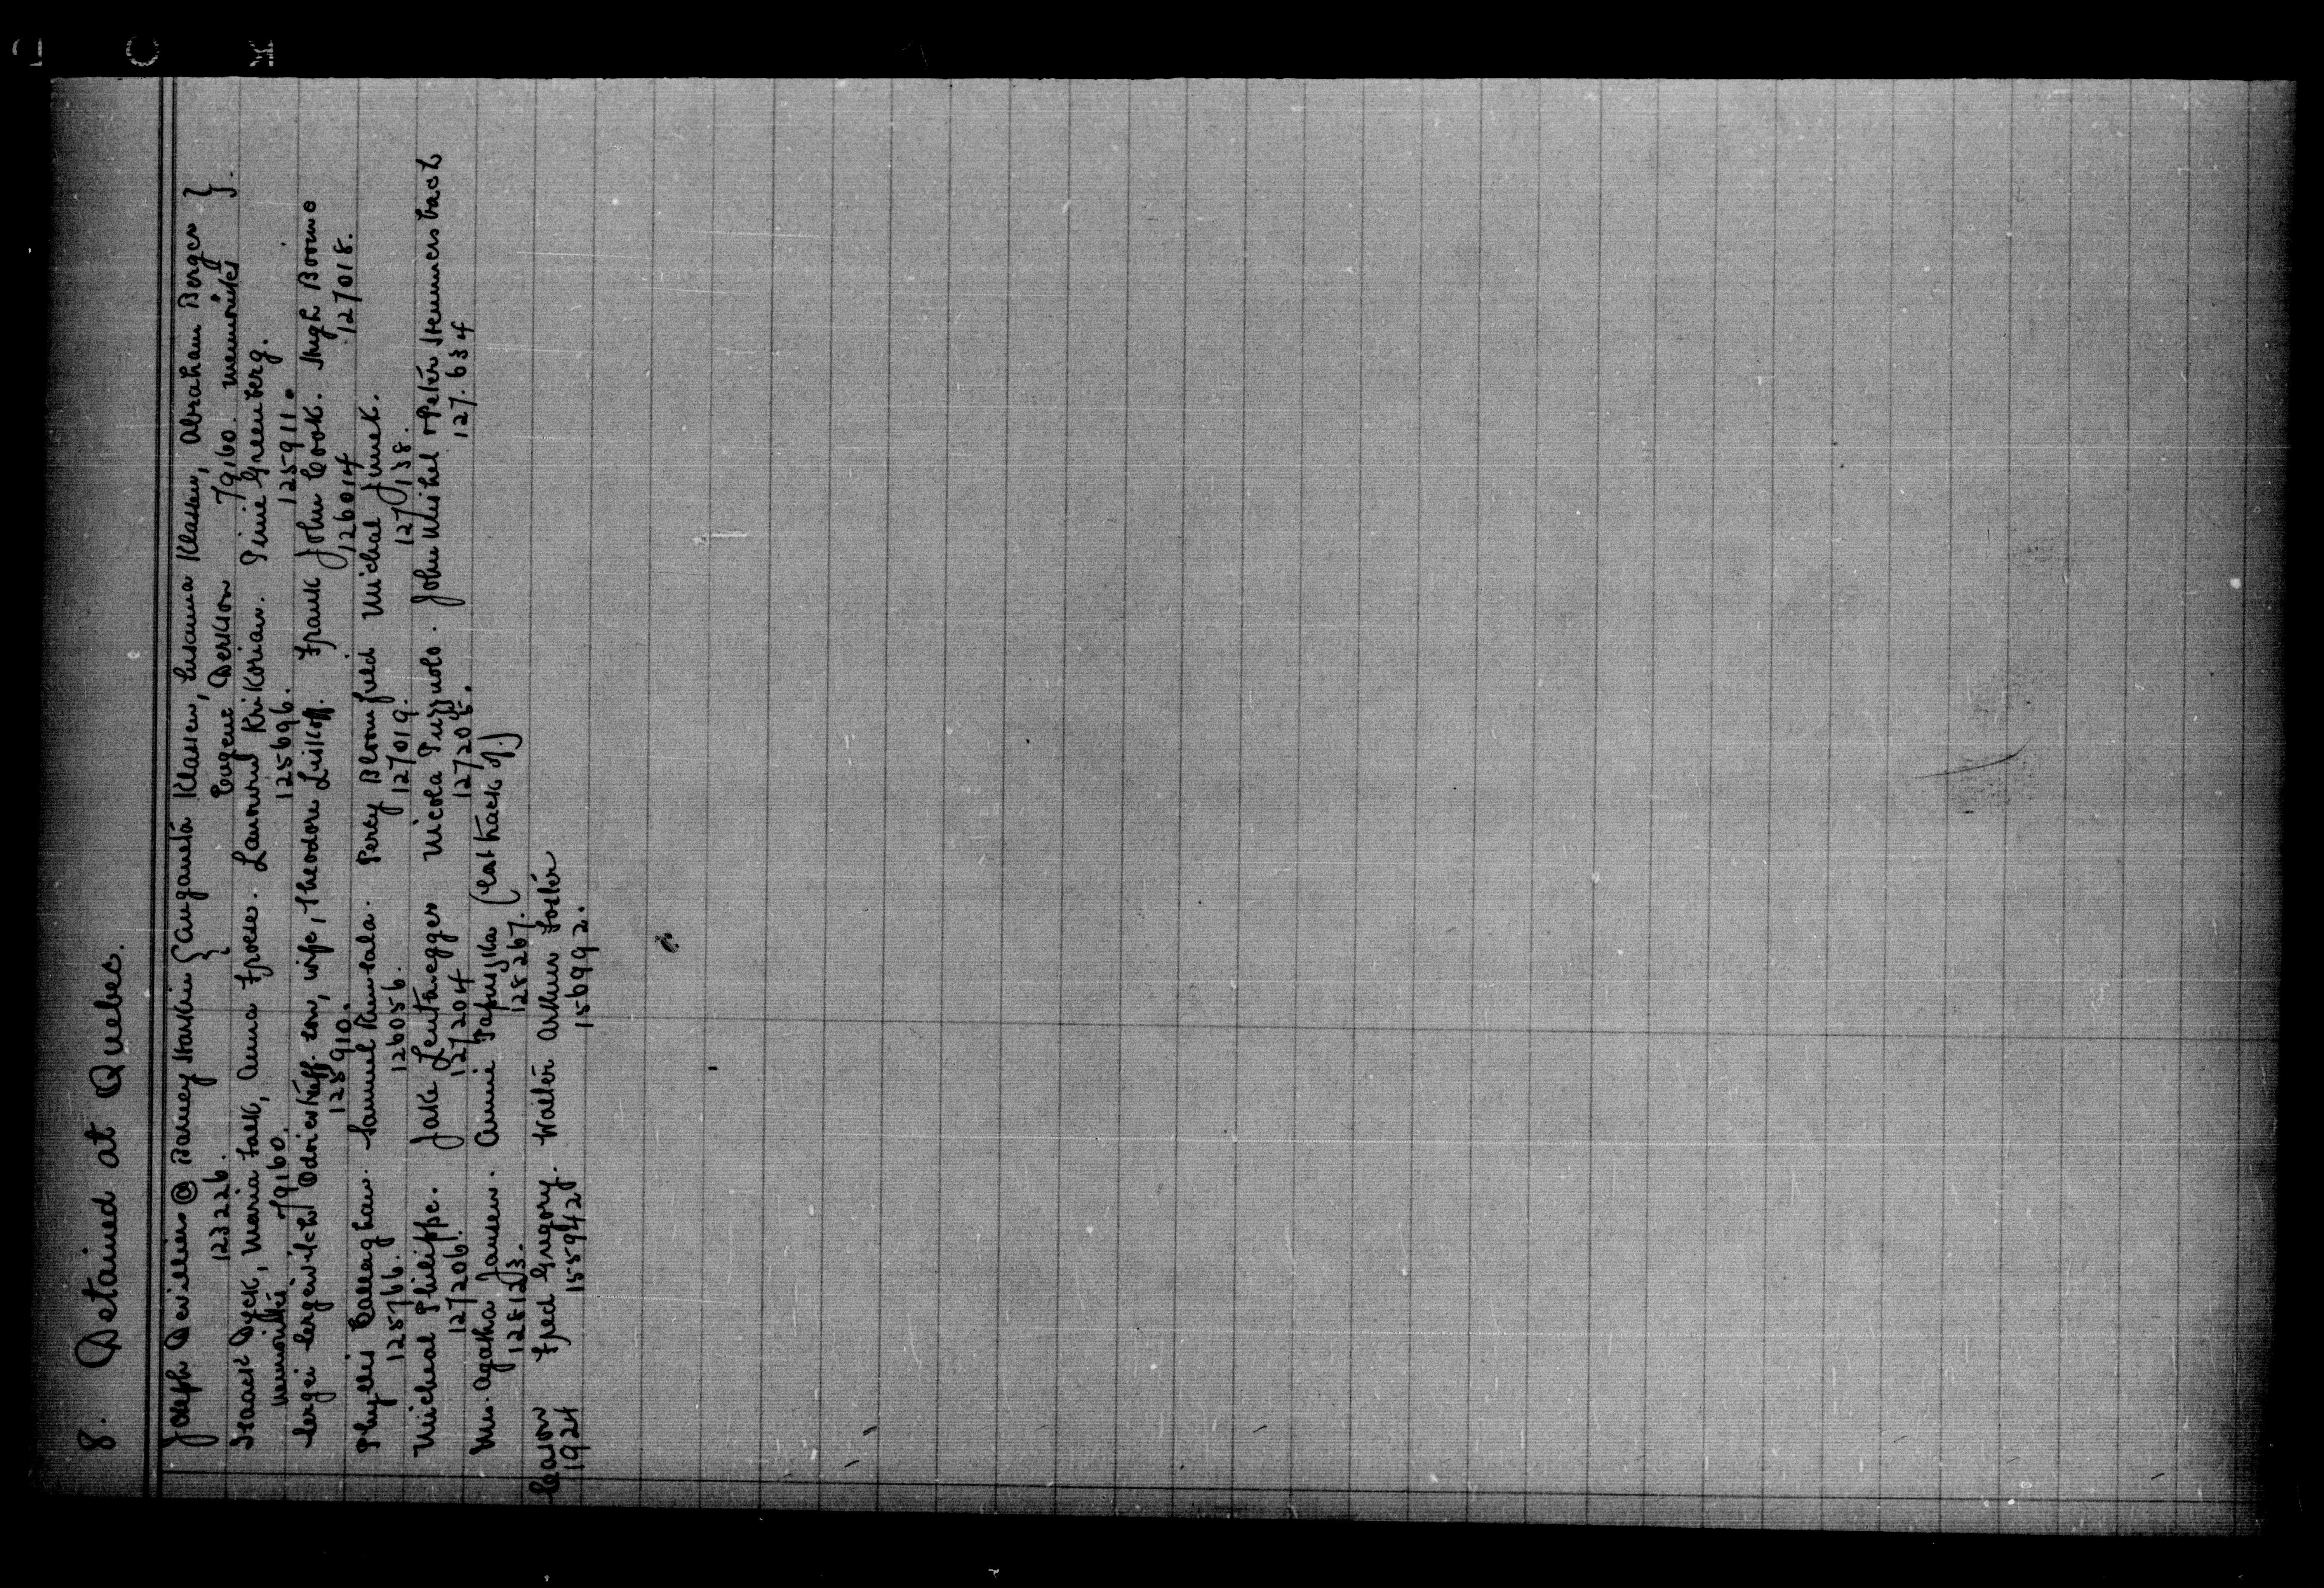 8. Detained at Quebec.
Joseph Devillier @ Barney Harkin { Anganeta Klassen, Susanna Klassen, Abraham Berger }
123226. Eugene Derksen 79160. Mennonites }.
Isaack Dyck, Maria Falk, Anna Froese. Krikorian. Pinie Greenberg.
Mennonites 79160. 125696. 125911.
Sergei Sergeivitch son, wife, Theodore Liskoff. Frank John Cook. Hugh Boome
125910. 126014 127018.
Phyllis Callaghan. Samuel Rumsala. Percy Bloomfield Michal Jimek.
125766. 126056. 127019. 127138.
Micheal Philippe. Jake Leutanegger Nicola Puzzuolo. John Meihel + Peter Stemmersbach
127206. 127204 127205. 127.634
Mrs. Agatha Jansen. Annie Papuzska (Cathack of.)
128123. 128267.
Season Fred Gregory. Walter Arthur Foster
1924 155942 156992.